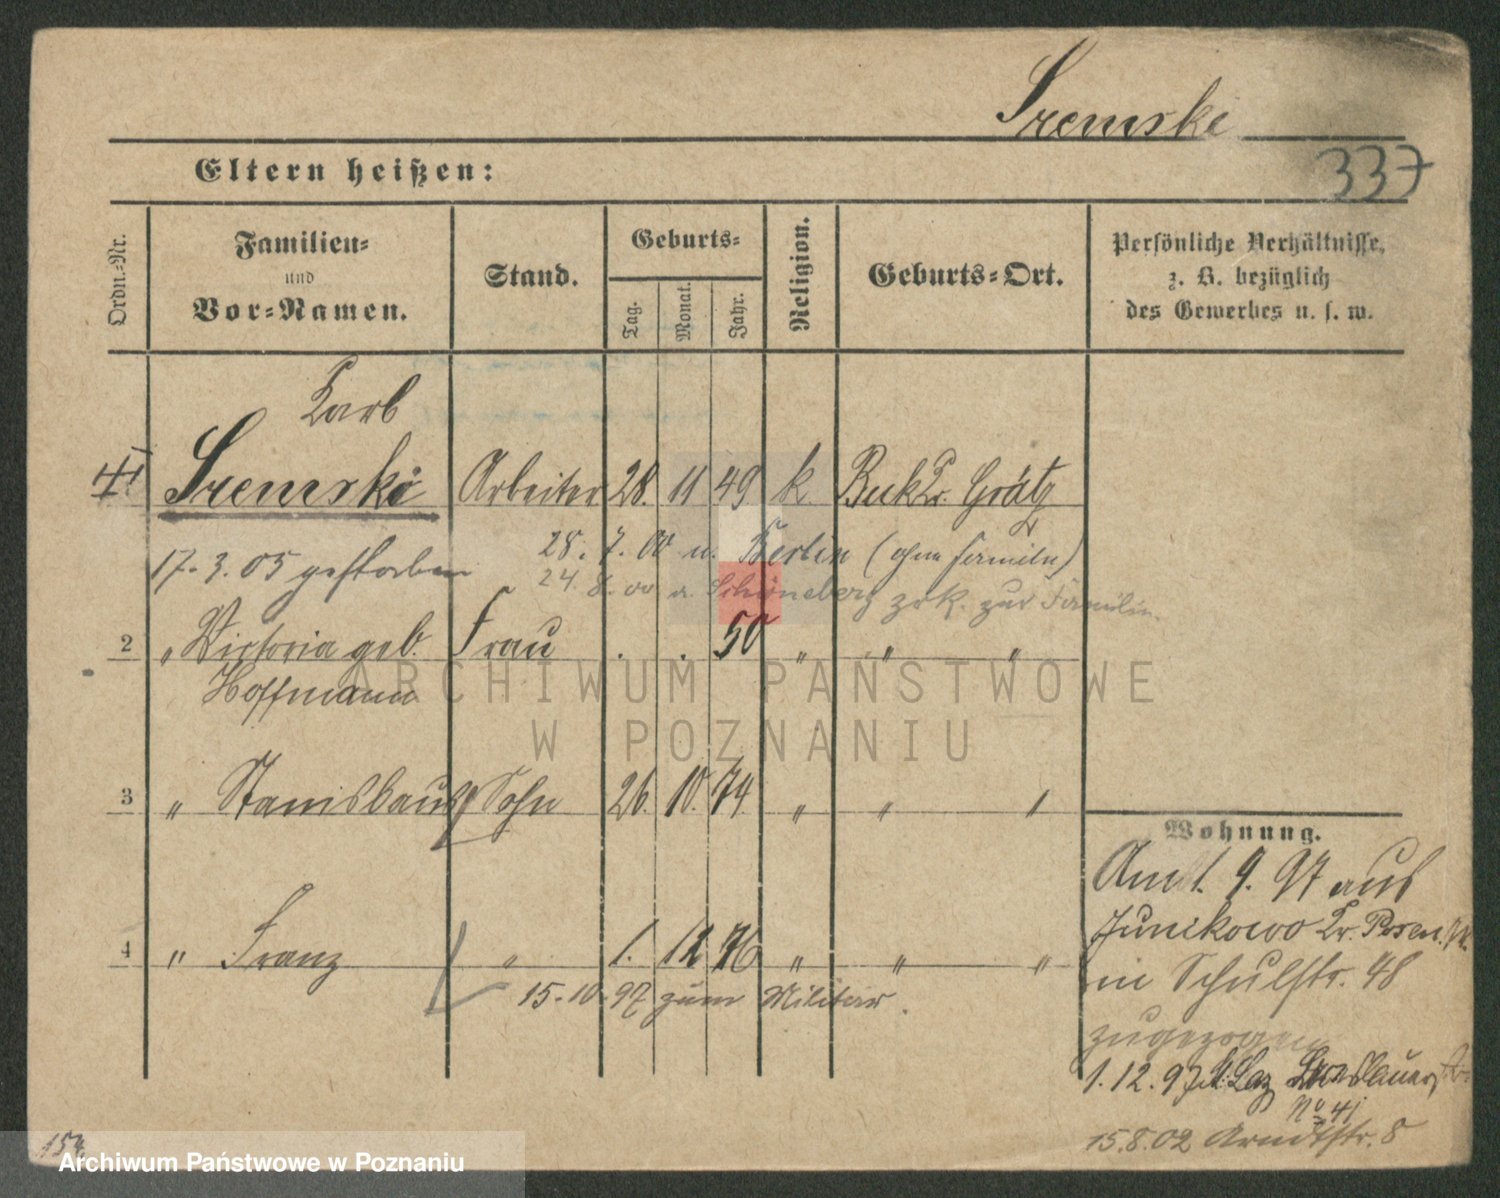 Sremski
337
Eltern heißen:
Ordn.-Nr.
Familien-
und
Vor-Namen.
Stand.
Geburts-
Tag.
Monat.
Jahr.
Religion.
Geburts-Ort.
Persönliche Verhältnisse,
z. B. bezüglich
des Gewerbes u. s. w.
Sremski Arbeiter 28. 11 49 k Buk Kr. Grätz
17.3.05 gestorben
28. 7. 00 n. Berlin (ohne Familie)
24. 8. 00 a. Schöneberg zrk. zur Familie.
2 " Victoria geb. Frau . . 50 " " "
Hoffmann
3 " Stanislaus Sohn 26. 10. 74 " " "
4 " Franz " 1. 12 76 " " "
15.10.97 zum Militär.
Wohnung.
1. 9. 97 aus
Junikowo Kr. Posen
in Schulstr. 48
zugezogen
1.12.97 St. Laz Breslauerstr.
No 41
15.8.02 Arndtstr. 8
154
ARCHIWUM PAŃSTWOWE
W POZNANIU
Archiwum Państwowe w Poznaniu